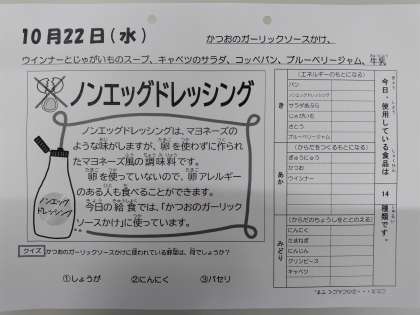 10月22日(水)
かつおのガーリックソースかけ、
ウインナーとじゃがいものスープ、キャベツのサラダ、コッペパン、ブルーベリージャム、牛乳
ノンエッグドレッシング
ノンエッグドレッシングは、マヨネーズの
ような味がしますが、卵を使わずに作られ
たマヨネーズ風の調味料です。
卵を使っていないので、卵アレルギー
のある人も食べることができます。
今日の給食では、「かつおのガーリック
ソースかけ」に使っています。
ノンエッグ
ドレッシング
クイズ
かつおのガーリックソースかけに使われている野菜は、何でしょうか?
①しょうが ②にんにく ③パセリ
今日、使用している食品は
14
種類です。
き
(エネルギーのもとになる)
パン
ノンエッグドレッシング
サラダあぶら
じゃがいも
さとう
ブルーベリージャム
あか
(からだをつくるもとになる)
ぎゅうにゅう
かつお
ウインナー
みどり
(からだのちょうしをととのえる)
にんにく
たまねぎ
にんじん
グリンピース
キャベツ